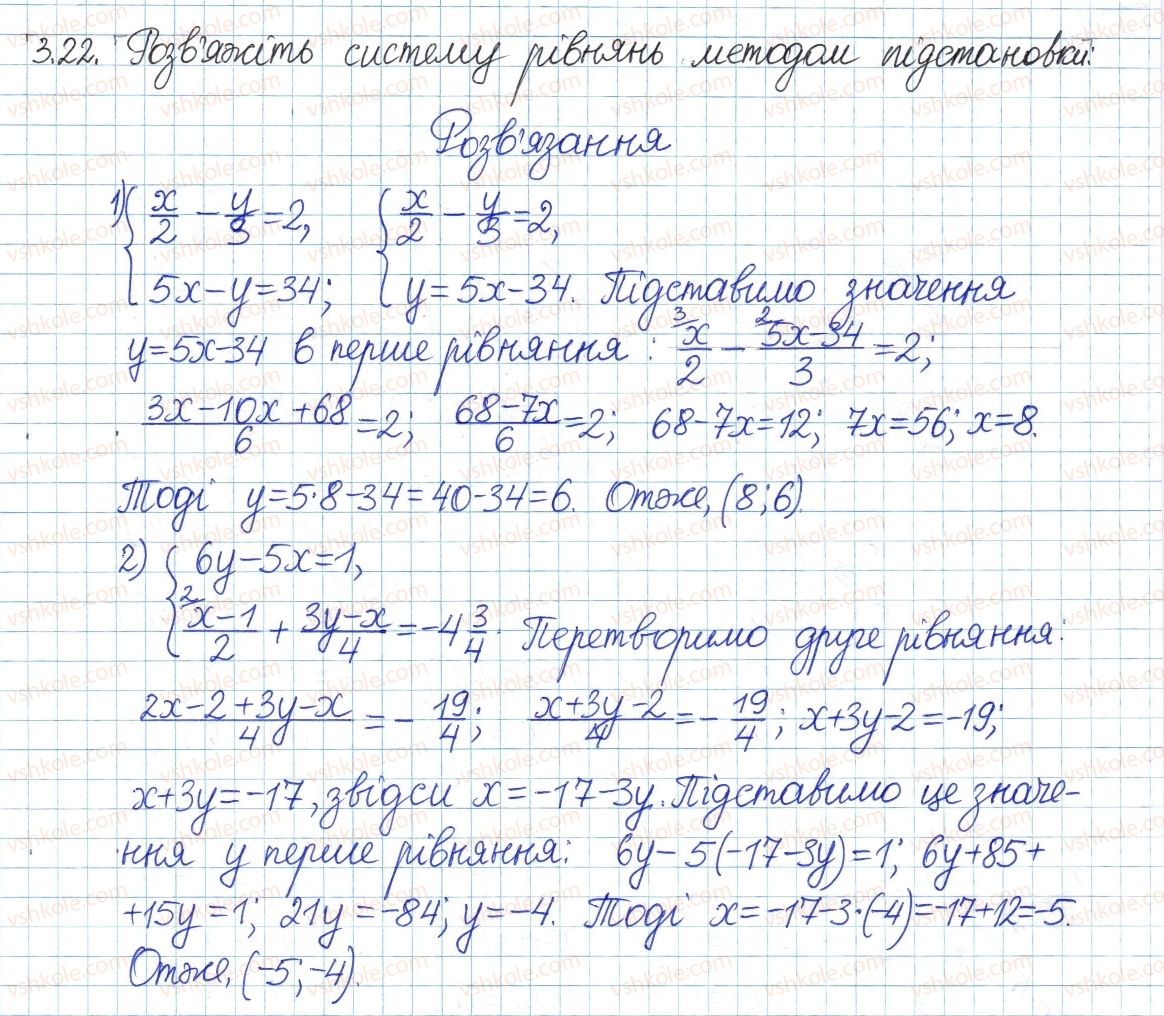 3.22. Розв'яжіть систему рівнянь методом підстановки:
Розв'язання
1) { x/2 - y/3 = 2, { x/2 - y/3 = 2,
5x - y = 34; y = 5x - 34. Підставимо значення
y = 5x - 34 в перше рівняння: ³x/2 - ²5x - 34/3 = 2;
3x - 10x + 68/6 = 2; 68 - 7x/6 = 2; 68 - 7x = 12; 7x = 56; x = 8.
Тоді y = 5·8 - 34 = 40 - 34 = 6. Отже, (8; 6).
2) { 6y - 5x = 1,
²x - 1/2 + 3y - x/4 = -4 3/4. Перетворимо друге рівняння:
2x - 2 + 3y - x/4 = - 19/4; x + 3y - 2/4 = - 19/4; x + 3y - 2 = -19;
x + 3y = -17, звідси x = -17 - 3y. Підставимо це значе-
ння у перше рівняння: 6y - 5(-17 - 3y) = 1; 6y + 85 +
+ 15y = 1; 21y = -84; y = -4. Тоді x = -17 - 3·(-4) = -17 + 12 = -5.
Отже, (-5; -4).